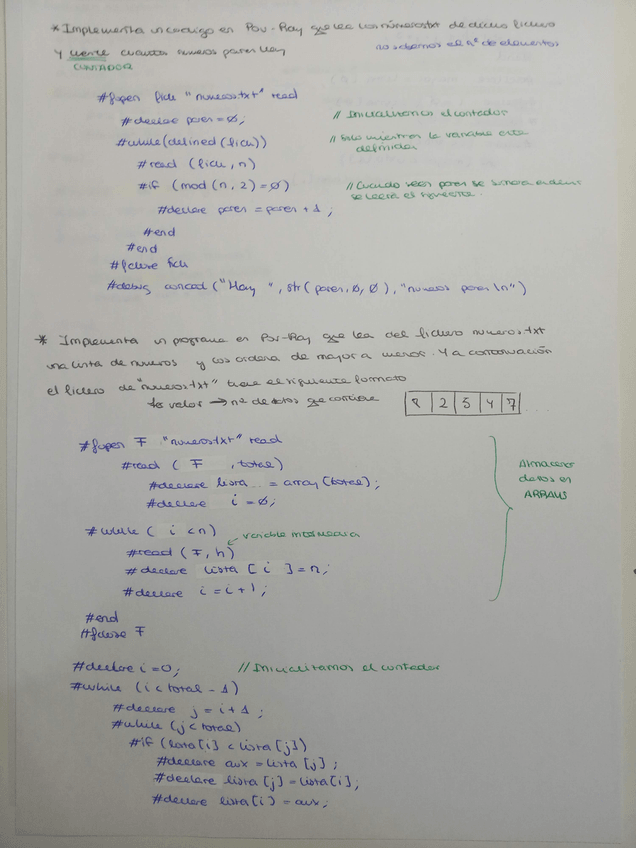 * Implementa un código en Pov-Ray que lea los números.txt de dicho fichero
y cuente cuantos numeros pares hay no sabemos el nº de elementos
CONTADOR
#fopen fich "numeros.txt" read
#declare pares = 0; // Inicializamos el contador
#while(defined (fich)) // Solo mientras la variable este
definida
#read (fich, n)
#if (mod (n, 2) = 0) // Cuando sean pares se
se leerá el siguiente.
#declare pares = pares + 1 ;
#end
#end
#fclose fich
#debug concat ("Hay ", str (pares, 0, 0), "numeros pares \n")
* Implementa un programa en Pov-Ray que lea del fichero numeros.txt
una lista de numeros y los ordena de mayor a menor. Y a continuación
el fichero de "numeros.txt" tiene el siguiente formato
1o valor → nº de datos que contiene 8 2 5 4 7 ....
#fopen F "numeros.txt" read
#read ( F , total) Almacenar
#declare lista = array [total] ; datos en
#declare i = 0; ARRAYS
#while ( i < n) variable
#read (F, n)
#declare lista [ i ] = n;
#declare i = i + 1;
#end
#fclose F
#declare i = 0; // Inicializamos el contador
#while (i < total - 1)
#declare j = i + 1 ;
#while (j < total)
#if (lista [i] < lista [j])
#declare aux = lista [j] ;
#declare lista [j] = lista [i] ;
#declare lista [i] = aux ;